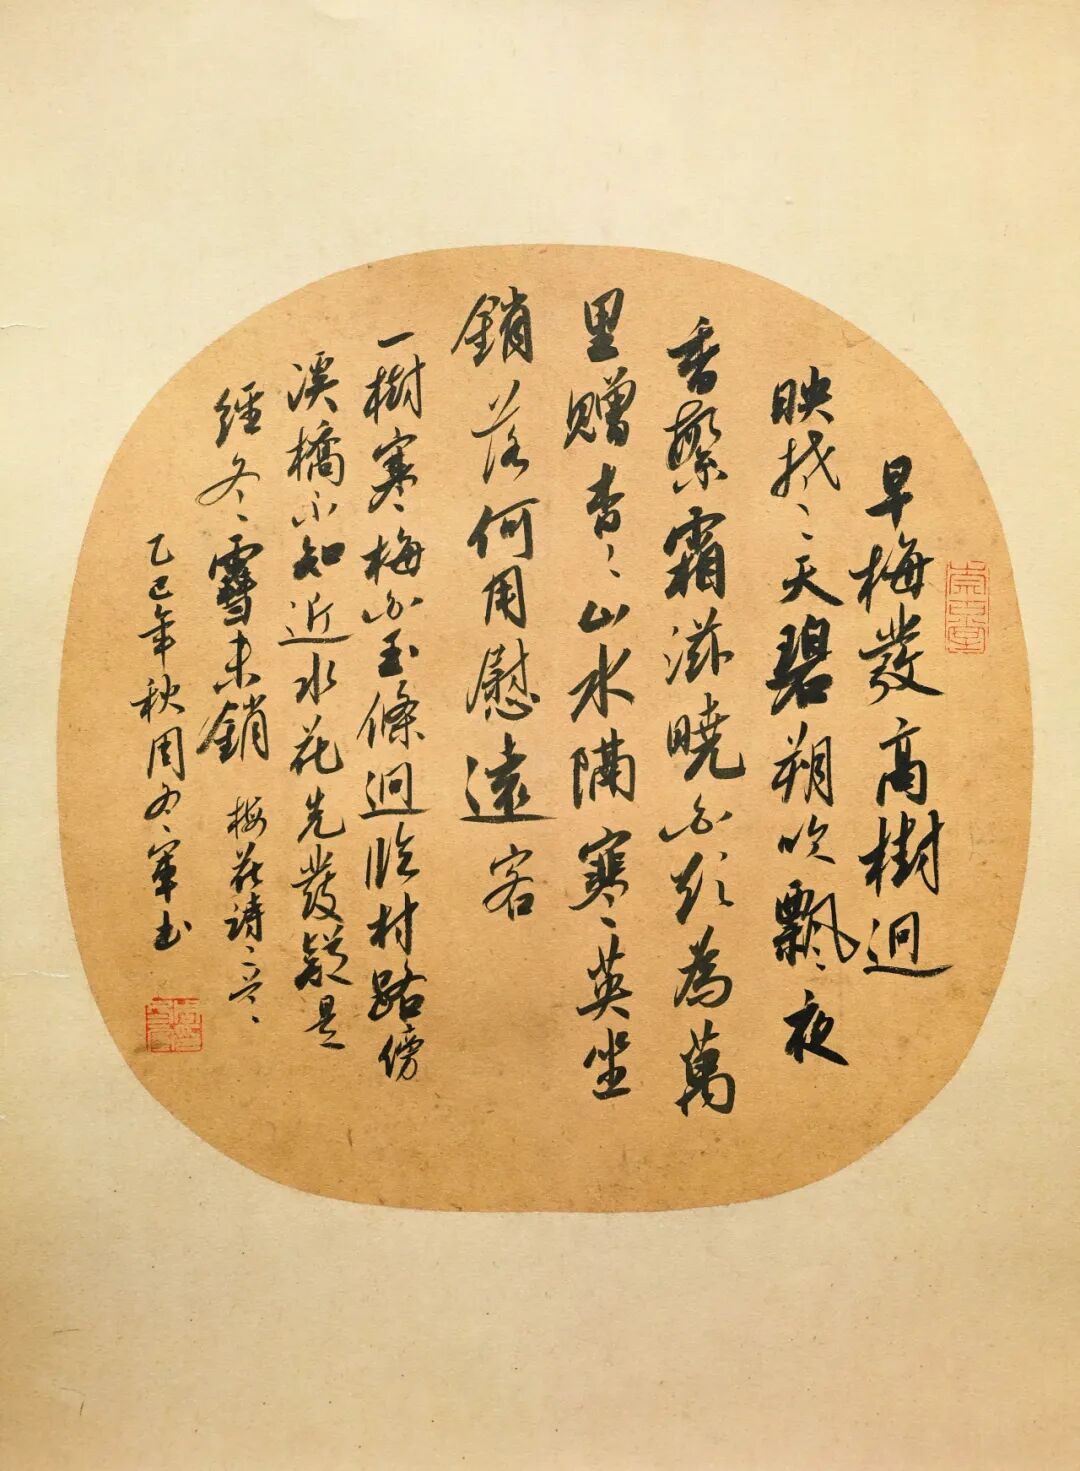 早梅發高樹迥
映楚天碧朔吹飄夜
香繁霜滋曉白欲為萬
里贈杳〻山水隔寒英坐
銷落何用慰遠客
一樹寒梅白玉條迥臨村路傍
溪橋不知近水花先發疑是
經冬雪未銷 梅花詩二首
乙巳年秋周冬軍書